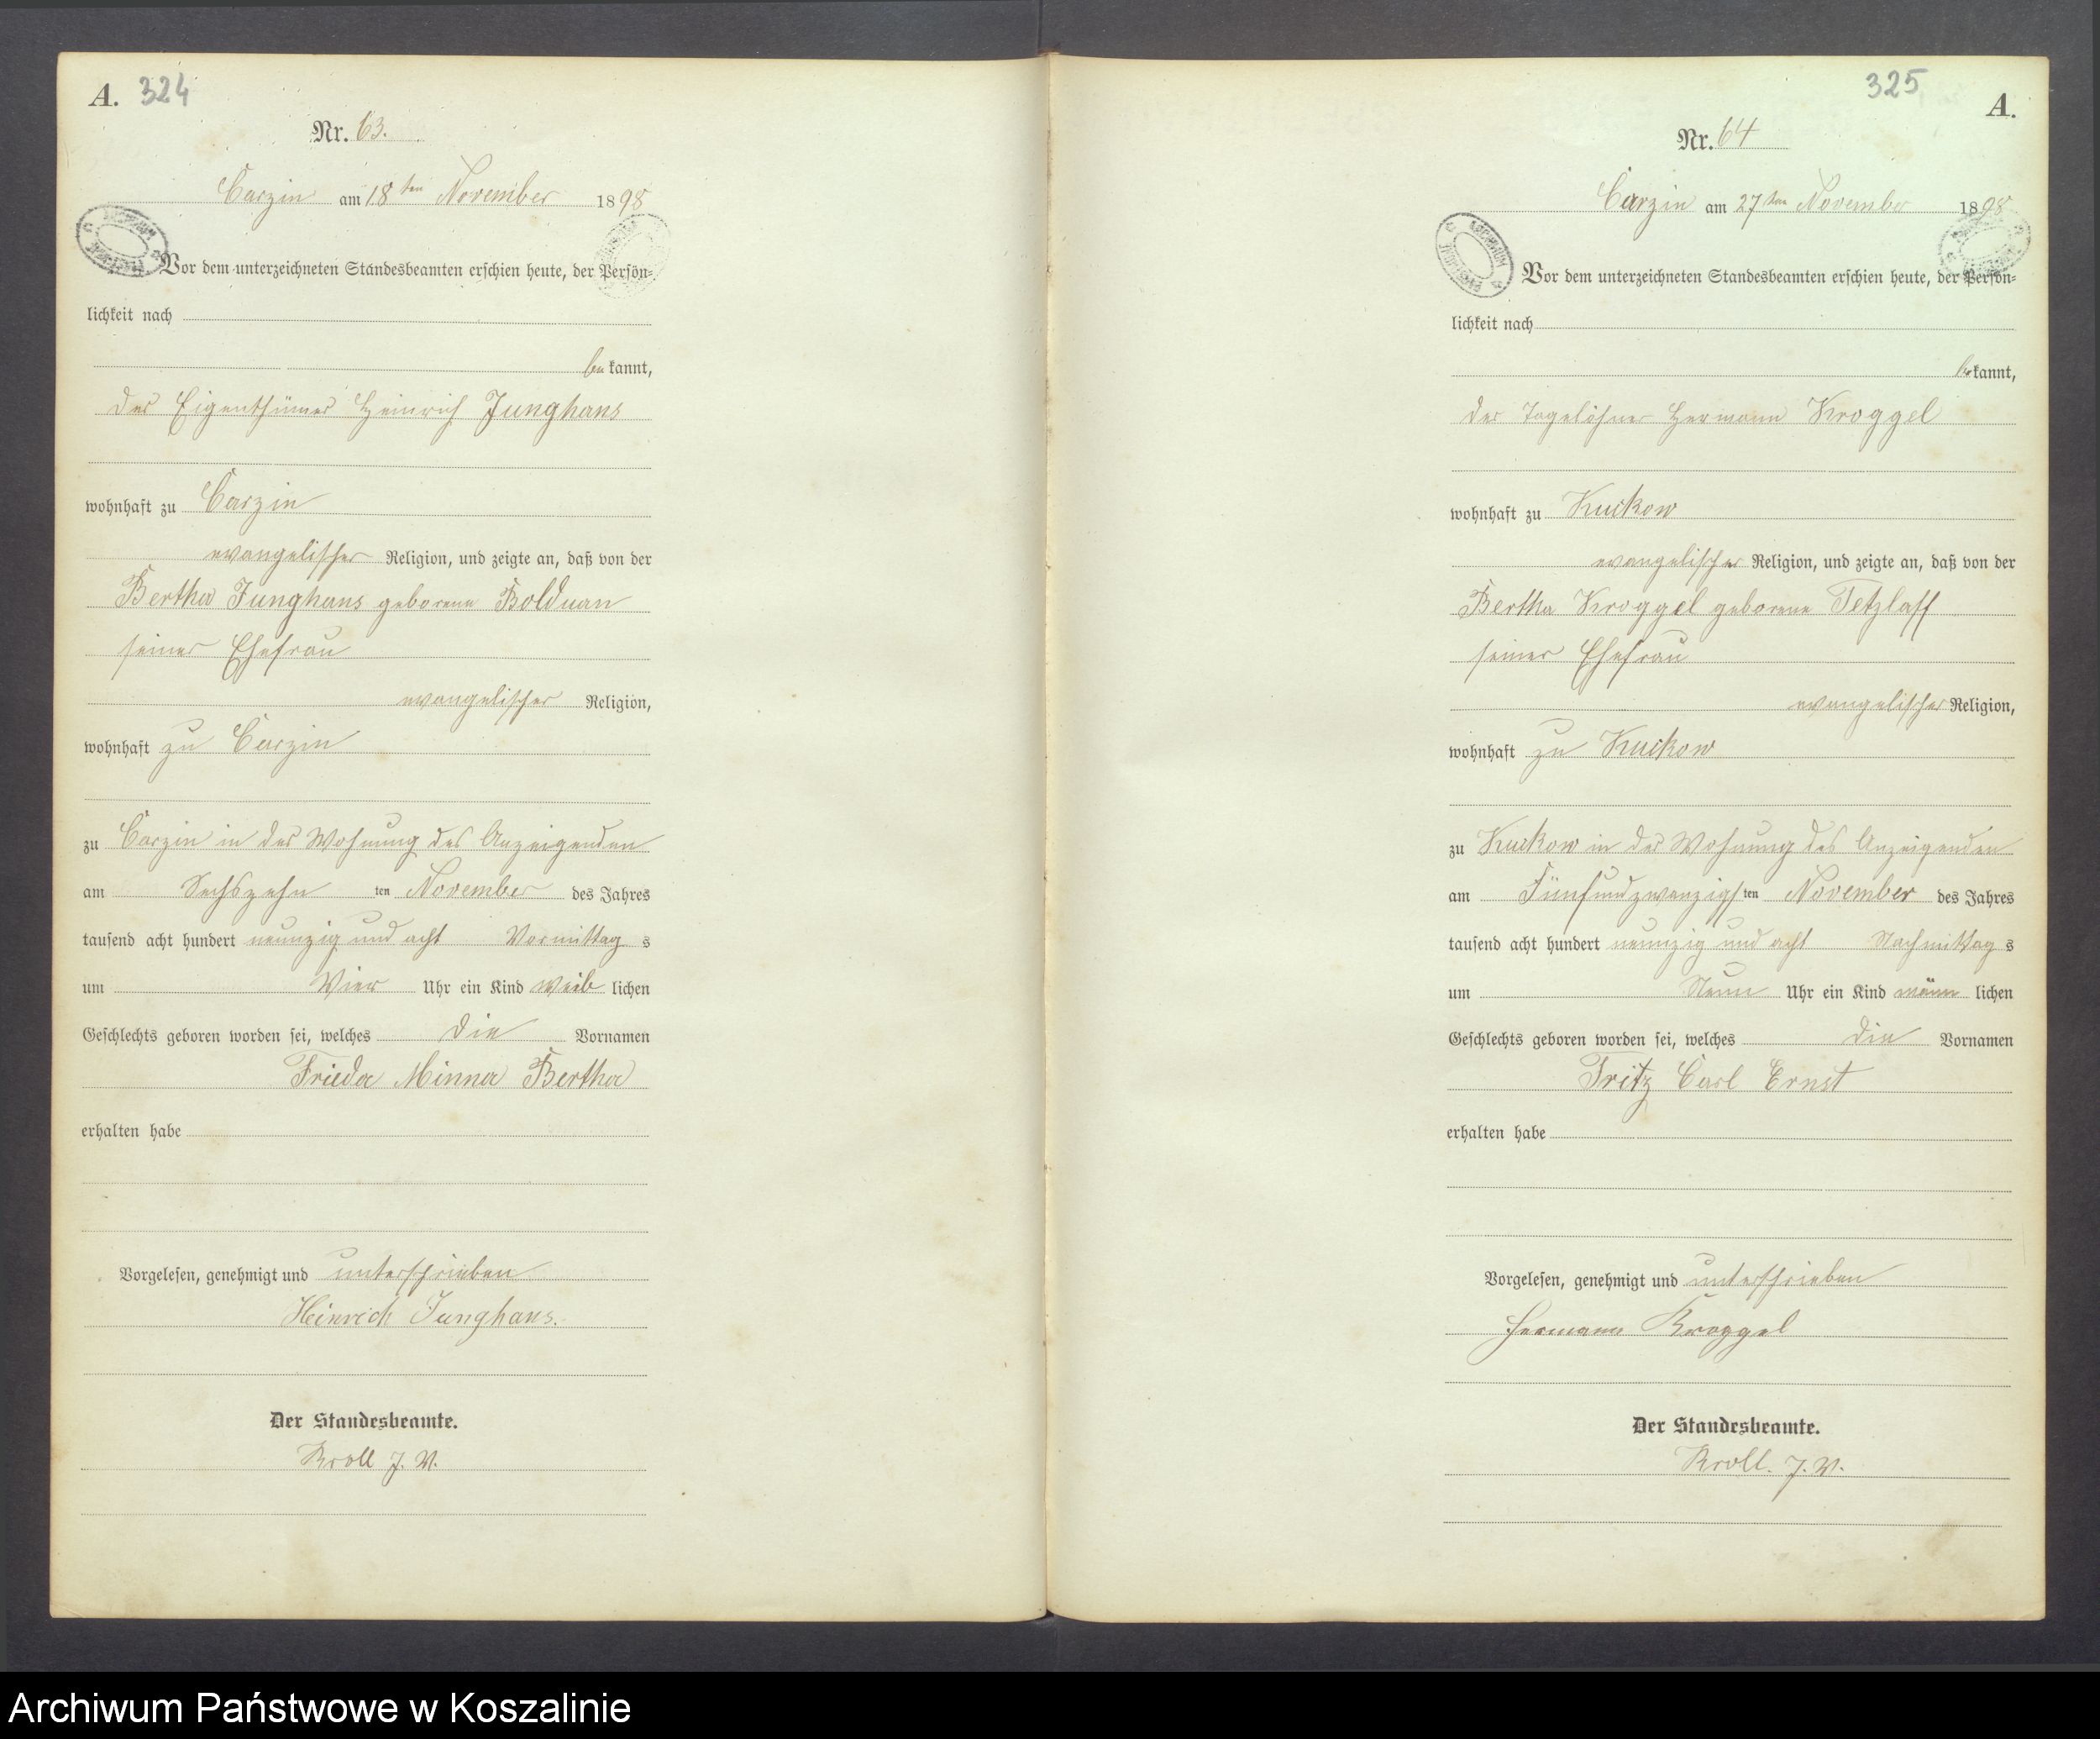 A. 324
Nr. 63.
Carzin am 18ten November 1898
Vor dem unterzeichneten Standesbeamten erschien heute, der Persön-
lichkeit nach
bekannt,
der Eigenthümer Heinrich Junghans
wohnhaft zu Carzin
evangelischer Religion, und zeigte an, daß von der
Bertha Junghans geborene Bolduan
seiner Ehefrau
evangelischer Religion,
wohnhaft zu Carzin
zu Carzin in der Wohnung des Anzeigenden
am Sechszehn ten November des Jahres
tausend acht hundert neunzig und acht Vormittag s
um Vier Uhr ein Kind weib lichen
Geschlechts geboren worden sei, welches die Vornamen
Frieda Minna Bertha
erhalten habe
Vorgelesen, genehmigt und unterschrieben
Heinrich Junghans.
Der Standesbeamte.
Kroll J. V.
325 A.
Nr. 64
Carzin am 27ten November 1898
Vor dem unterzeichneten Standesbeamten erschien heute, der Persön-
lichkeit nach
bekannt,
der Tagelöhner Hermann Kroggel
wohnhaft zu Kukow
evangelischer Religion, und zeigte an, daß von der
Bertha Kroggel geborene Tetzlaff
seiner Ehefrau
evangelischer Religion,
wohnhaft zu Kukow
zu Kukow in der Wohnung des Anzeigenden
am Fünfundzwanzigs ten November des Jahres
tausend acht hundert neunzig und acht Nachmittag s
um Neun Uhr ein Kind männ lichen
Geschlechts geboren worden sei, welches die Vornamen
Fritz Carl Ernst
erhalten habe
Vorgelesen, genehmigt und unterschrieben
Hermann Kroggel
Der Standesbeamte.
Kroll. J. V.
Archiwum Państwowe w Koszalinie